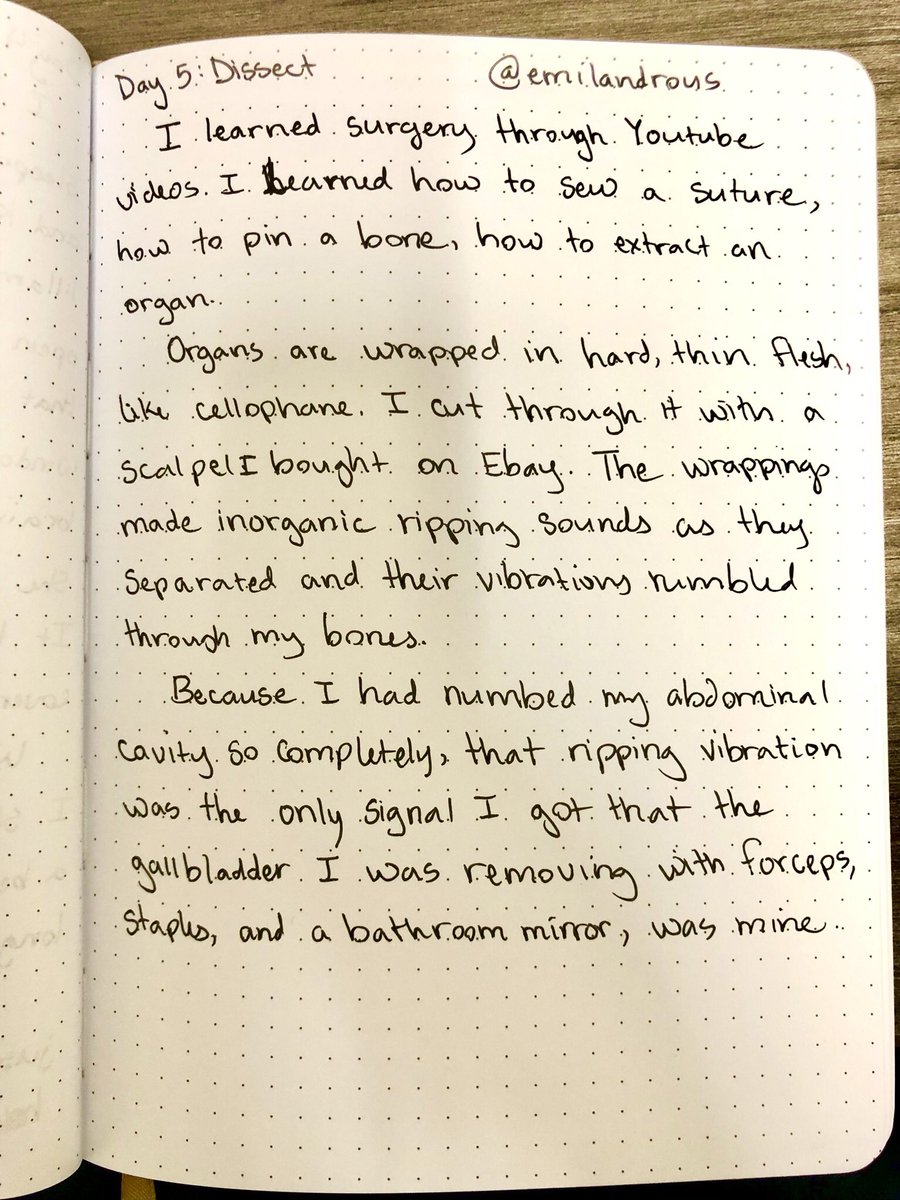 Day 5: Dissect @emilandrous
I learned surgery through Youtube
videos. I learned how to sew a suture,
how to pin a bone, how to extract an
organ.
Organs are wrapped in hard, thin flesh,
like cellophane. I cut through it with a
scalpel I bought on Ebay. The wrappings
made inorganic ripping sounds as they
separated and their vibrations rumbled
through my bones.
Because I had numbed my abdominal
cavity so completely, that ripping vibration
was the only signal I got that the
gallbladder I was removing with forceps,
staples, and a bathroom mirror, was mine.